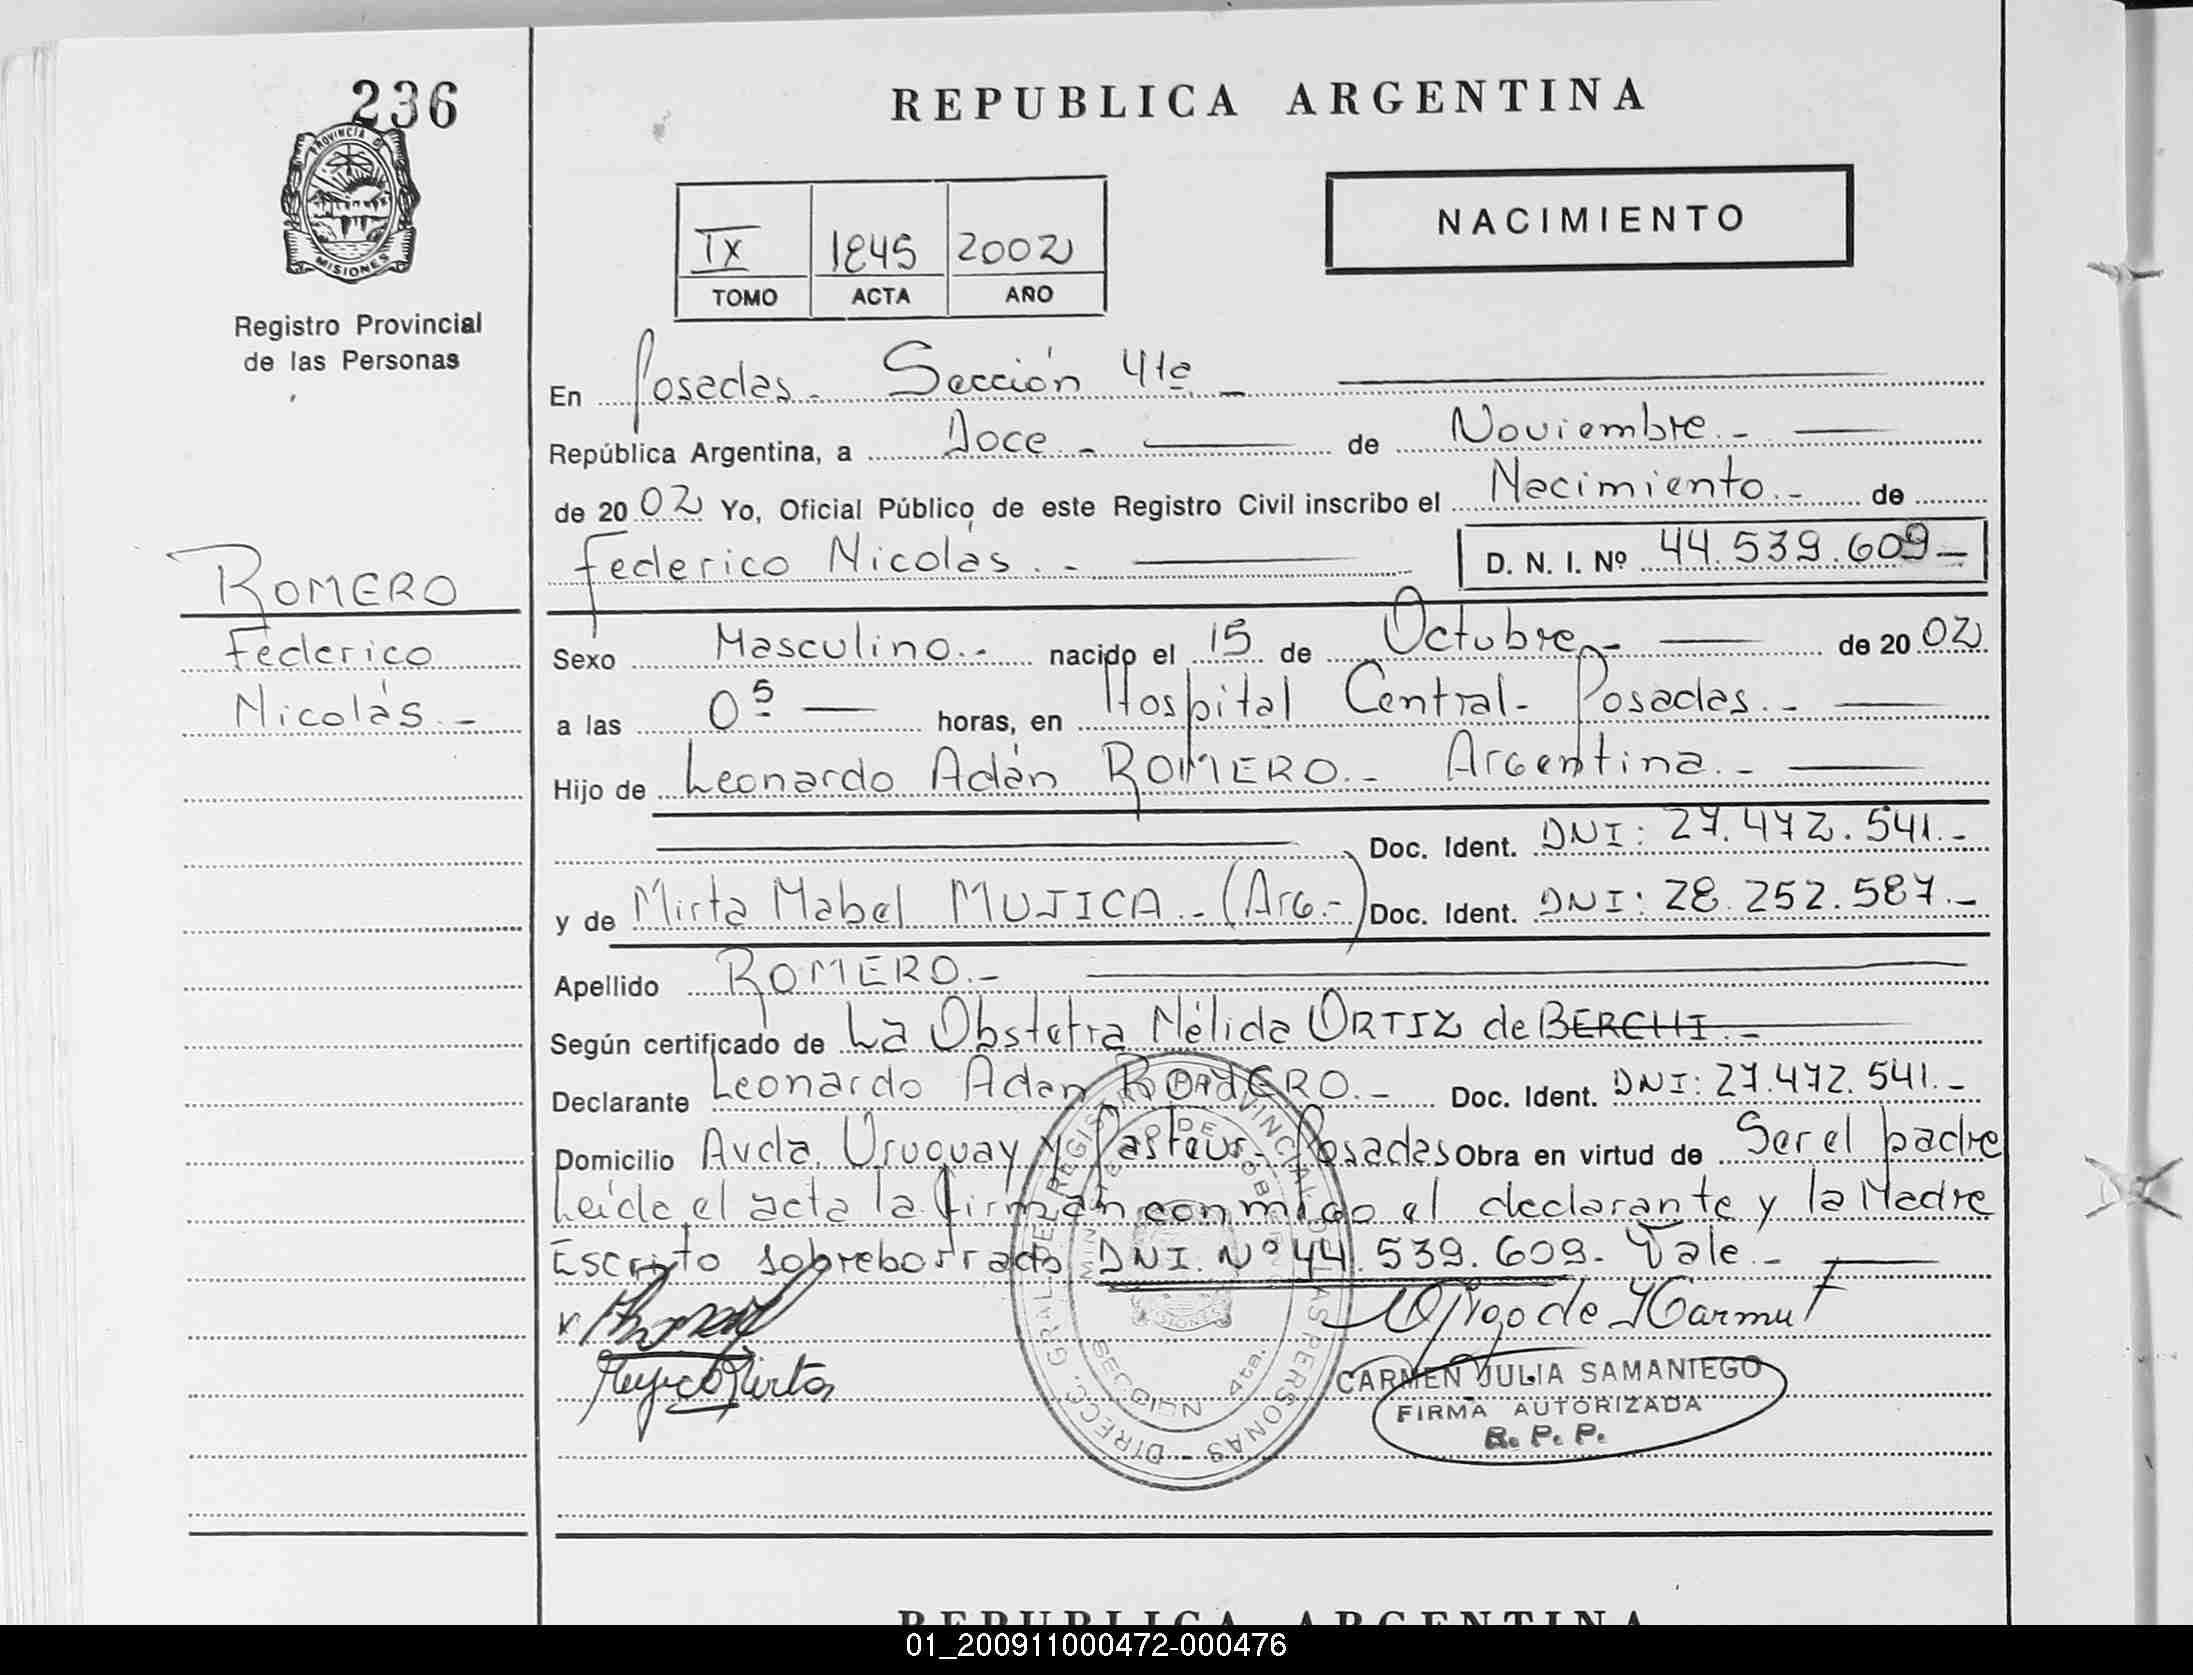 236
REPUBLICA ARGENTINA
PROVINCIA DE
MISIONES
Registro Provincial
de las Personas
IX 1845 2002
TOMO ACTA AÑO
NACIMIENTO
En Posadas - Sección 4ta -
República Argentina, a Doce - de Noviembre -
de 2002 Yo, Oficial Público de este Registro Civil inscribo el Nacimiento - de
Federico Nicolás - D. N. I. Nº 44.539.609 -
ROMERO
Federico
Nicolás -
Sexo Masculino - nacido el 15 de Octubre - de 2002
a las 0⁵ horas, en Hospital Central - Posadas -
Hijo de Leonardo Adán ROMERO - Argentina -
Doc. Ident. DNI: 27.472.541 -
y de Mirta Mabel MUJICA - (Arg.-) Doc. Ident. DNI: 28.252.587 -
Apellido ROMERO -
Según certificado de La Obstetra Nélida ORTIZ de BERCHI -
Declarante Leonardo Adan ROMERO - Doc. Ident. DNI: 27.472.541 -
Domicilio Avda. Uruguay y Pasteur - Posadas Obra en virtud de Ser el padre
Leída el acta la firman conmigo el declarante y la Madre
Escrito sobreborrado DNI. Nº 44.539.609 - Vale -
DIRECC. GRAL. DE REGISTRO PROVINCIAL DE LAS PERSONAS
SECCION 4ta.
CARMEN JULIA SAMANIEGO
FIRMA AUTORIZADA
R. P. P.
REPUBLICA ARGENTINA
01_200911000472-000476